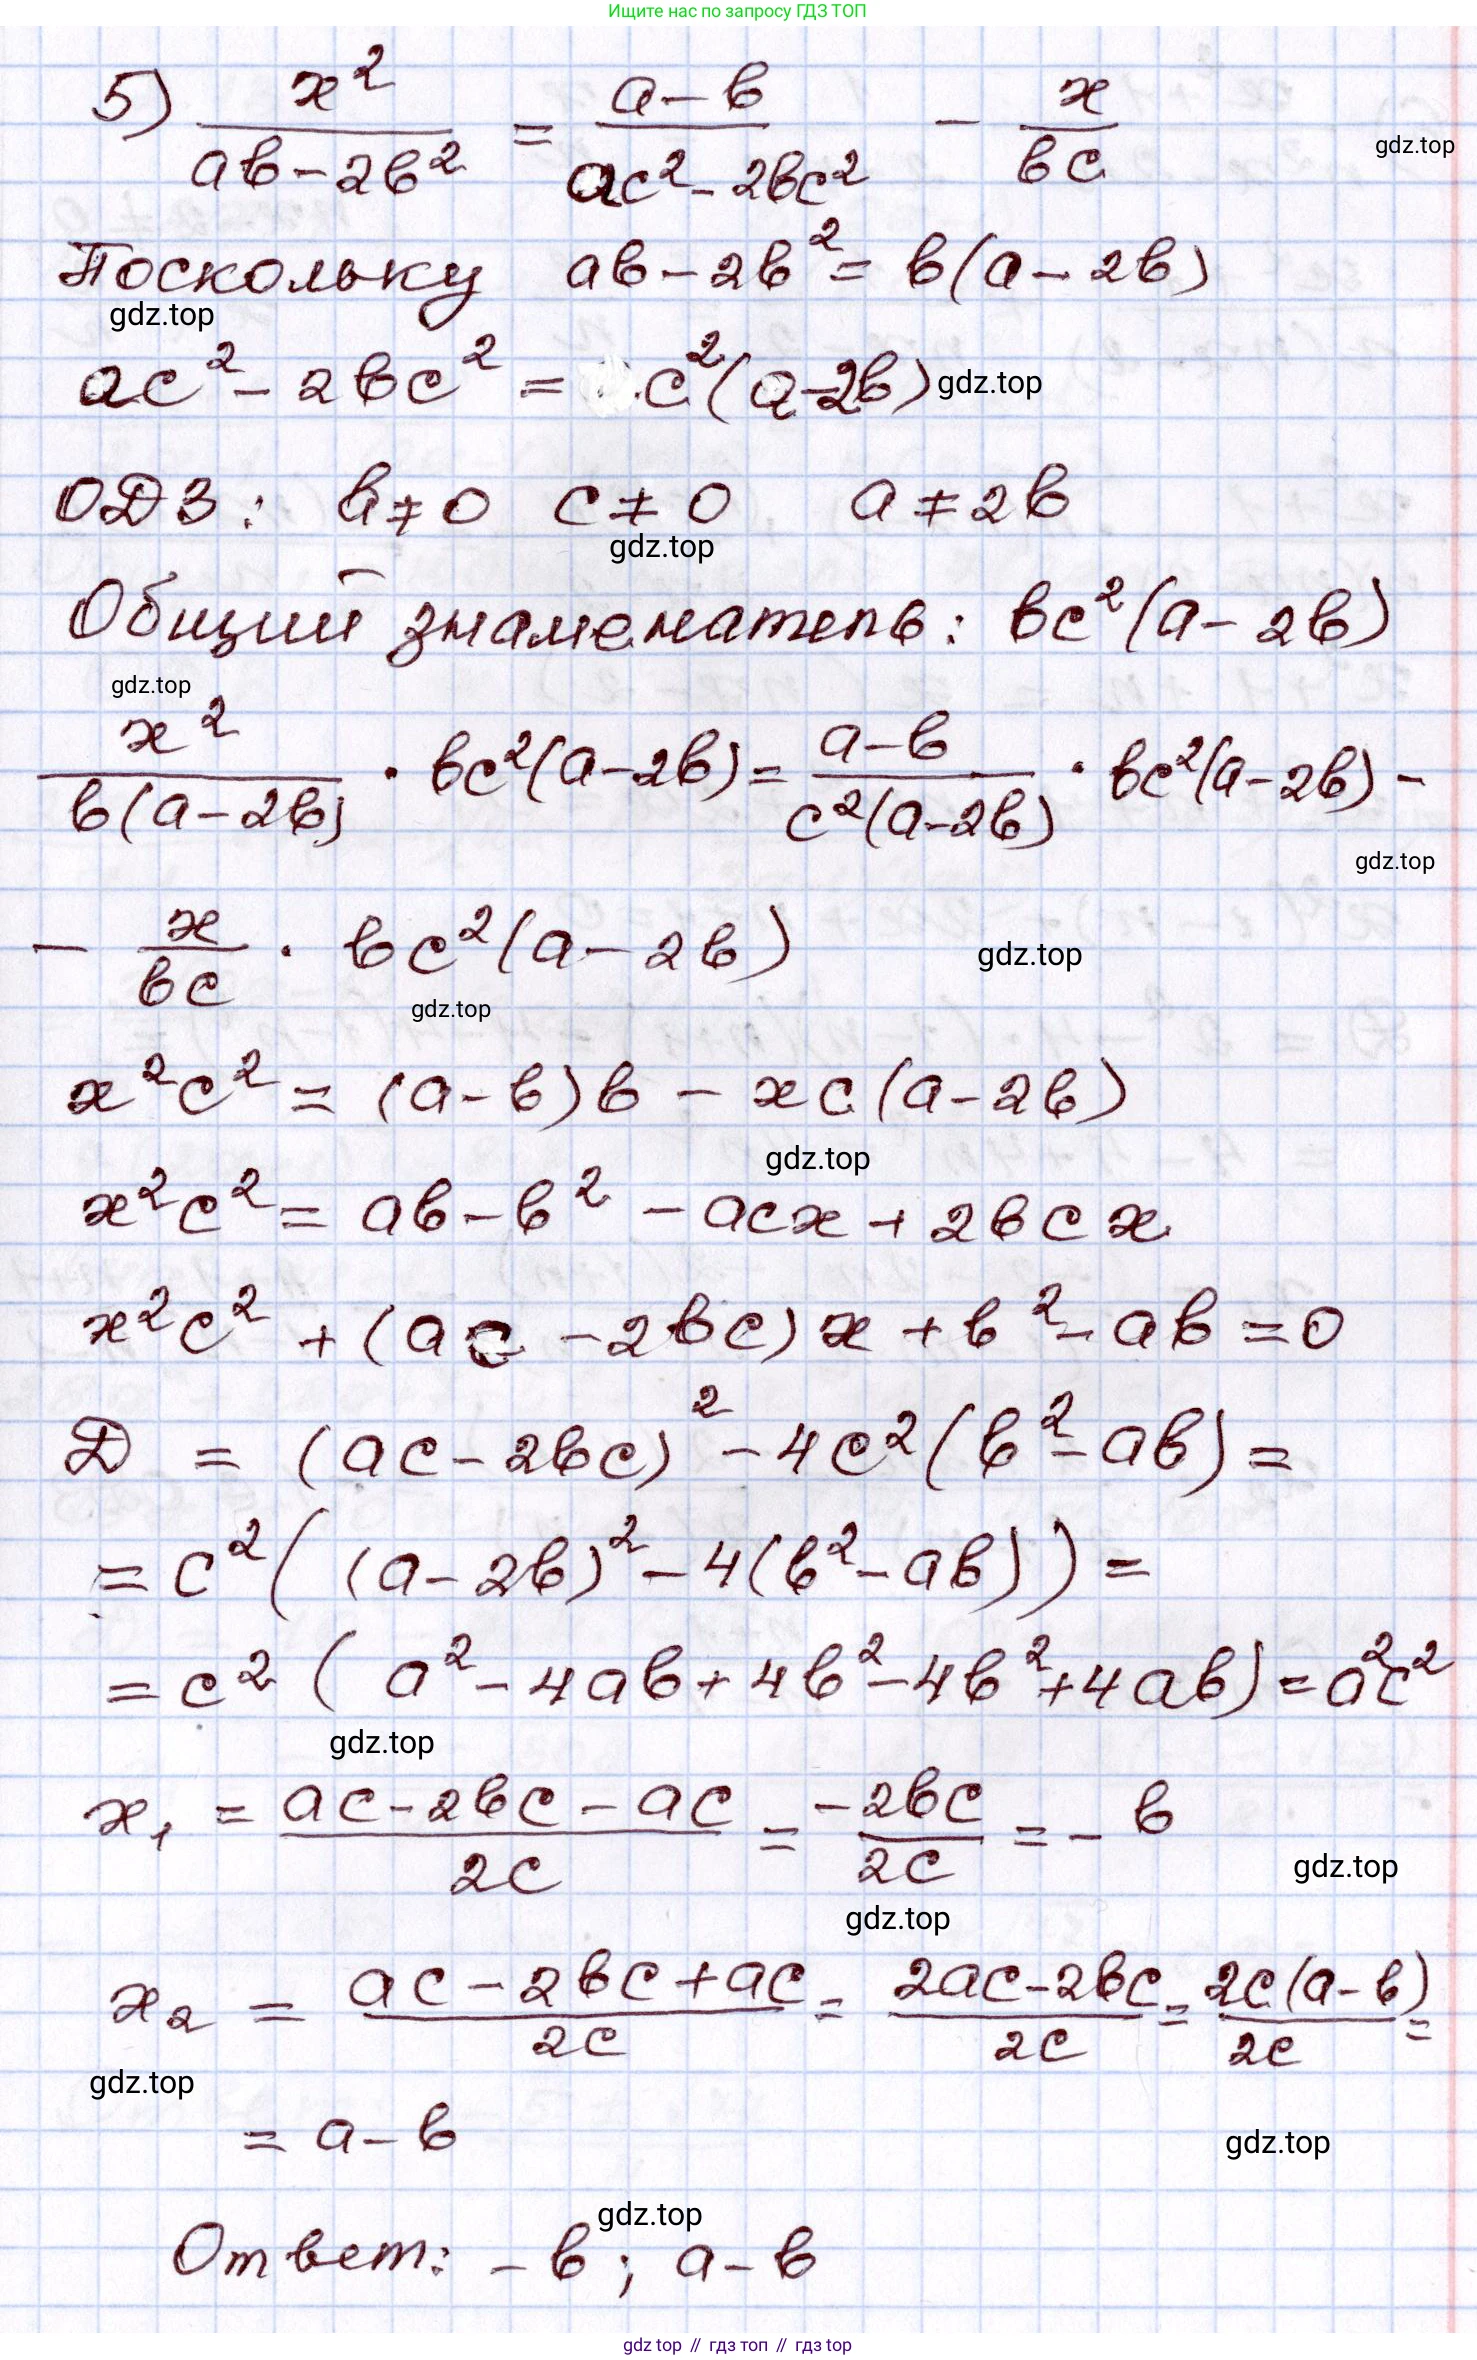 Ищите нас по запросу ГДЗ ТОП
5) x²/(ab-2b²) = (a-b)/(ac²-2bc²) - x/(bc)
gdz.top
Поскольку ab-2b² = b(a-2b)
gdz.top
ac²-2bc² = c²(a-2b) gdz.top
ОДЗ: b≠0 c≠0 a≠2b
gdz.top
Общий знаменатель: bc²(a-2b)
gdz.top
x²/(b(a-2b)) · bc²(a-2b) = (a-b)/(c²(a-2b)) · bc²(a-2b) -
gdz.top
- x/(bc) · bc²(a-2b) gdz.top
gdz.top
x²c² = (a-b)b - xc(a-2b)
gdz.top
x²c² = ab-b² - acx + 2bcx
x²c² + (ac - 2bc)x + b² - ab = 0
D = (ac-2bc)² - 4c²(b²-ab) =
= c²((a-2b)² - 4(b²-ab)) =
= c²(a²-4ab+4b²-4b²+4ab) = a²c²
gdz.top
x₁ = (ac-2bc-ac)/(2c) = (-2bc)/(2c) = -b
gdz.top
gdz.top
x₂ = (ac-2bc+ac)/(2c) = (2ac-2bc)/(2c) = (2c(a-b))/(2c) =
gdz.top
= a-b
gdz.top
gdz.top
Ответ: -b; a-b
gdz top // гдз топ // гдз top